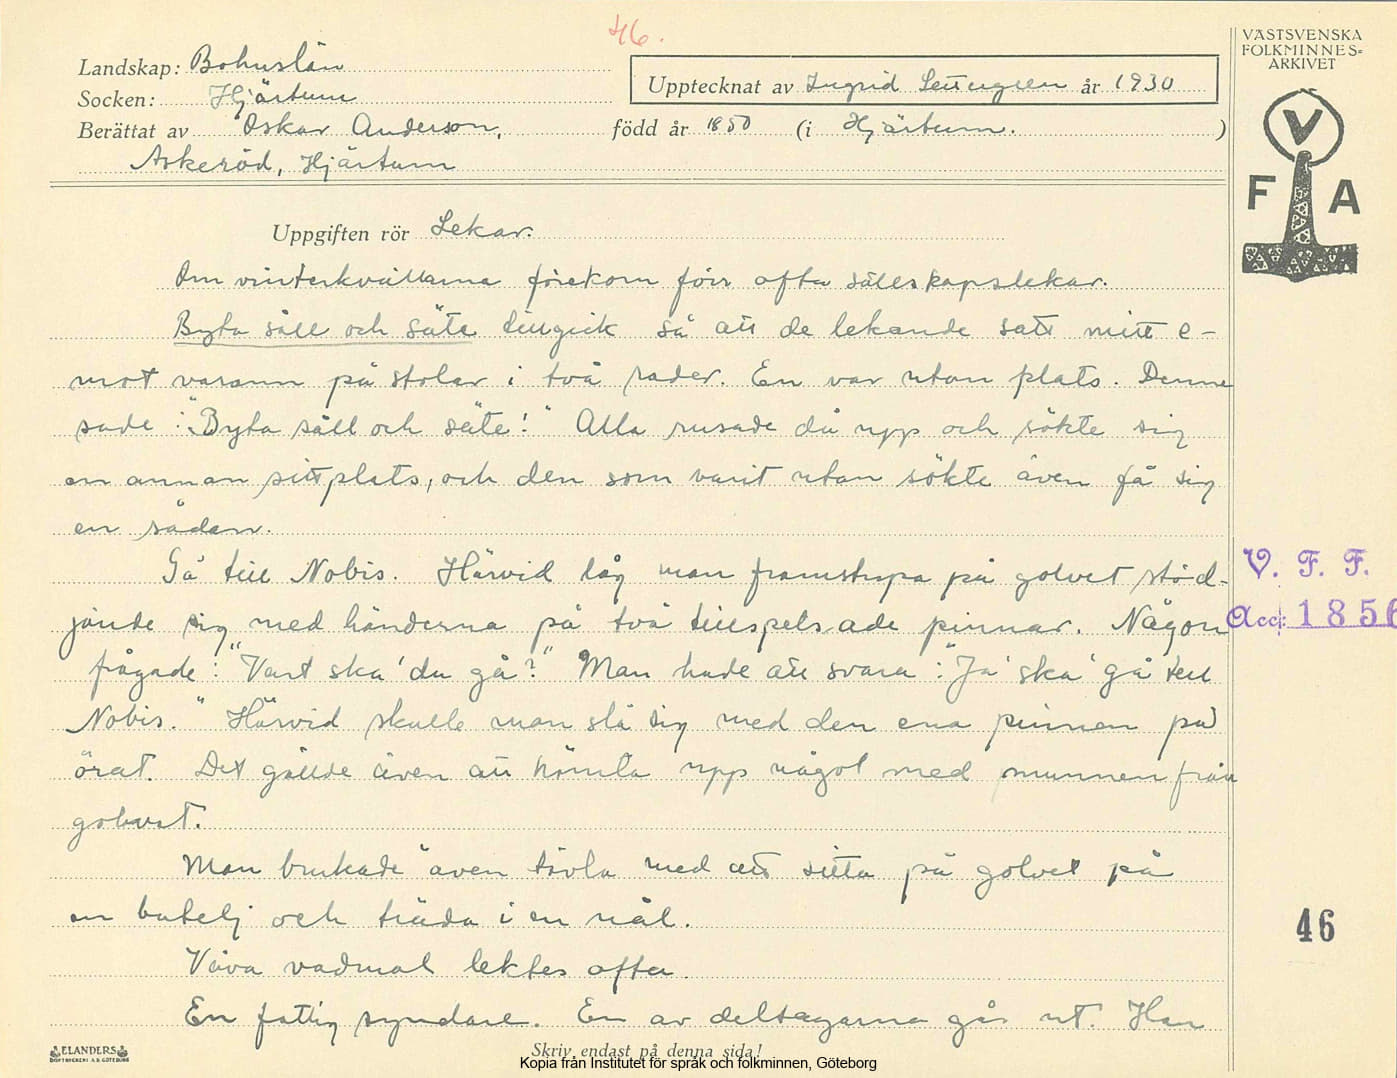 46.
VÄSTSVENSKA
FOLKMINNES=
ARKIVET
Landskap: Bohuslän
Socken: Hjärtum
Upptecknat av Ingrid år 1930
Berättat av Oskar Anderson, född år 1850 (i Hjärtum. )
Askeröd, Hjärtum
V
F A
Uppgiften rör Lekar.
Om vinterkvällarna förekom förr ofta sällskapslekar.
Byta säll och säte tillgick så att de lekande satt mitt e-
mot varann på stolar i två rader. En var utan plats. Denne
sade: "Byta säll och säte!" Alla rusade då upp och sökte sig
en annan sittplats, och den som varit utan sökte även få sig
en sådan.
Gå till Nobis. Härvid låg man framstupa på golvet stöd-
jande sig med händerna på två tillspetsade pinnar. Någon
frågade: "Vart ska' du gå?" Man hade att svara: "Ja' ska' gå till
Nobis." Härvid skulle man slå sig med den ena pinnen på
örat. Det gällde även att hämta upp något med munnen från
golvet.
Man brukade även tävla med att sitta på golvet på
en butelj och träda i en nål.
Väva vadmal lektes ofta.
En fattig syndare. En av deltagarna går ut. Han
V. F. F.
Acc: 1856
46
ELANDERS
BOKTRYCKERI A.B. GÖTEBORG
Skriv endast på denna sida!
Kopia från Institutet för språk och folkminnen, Göteborg